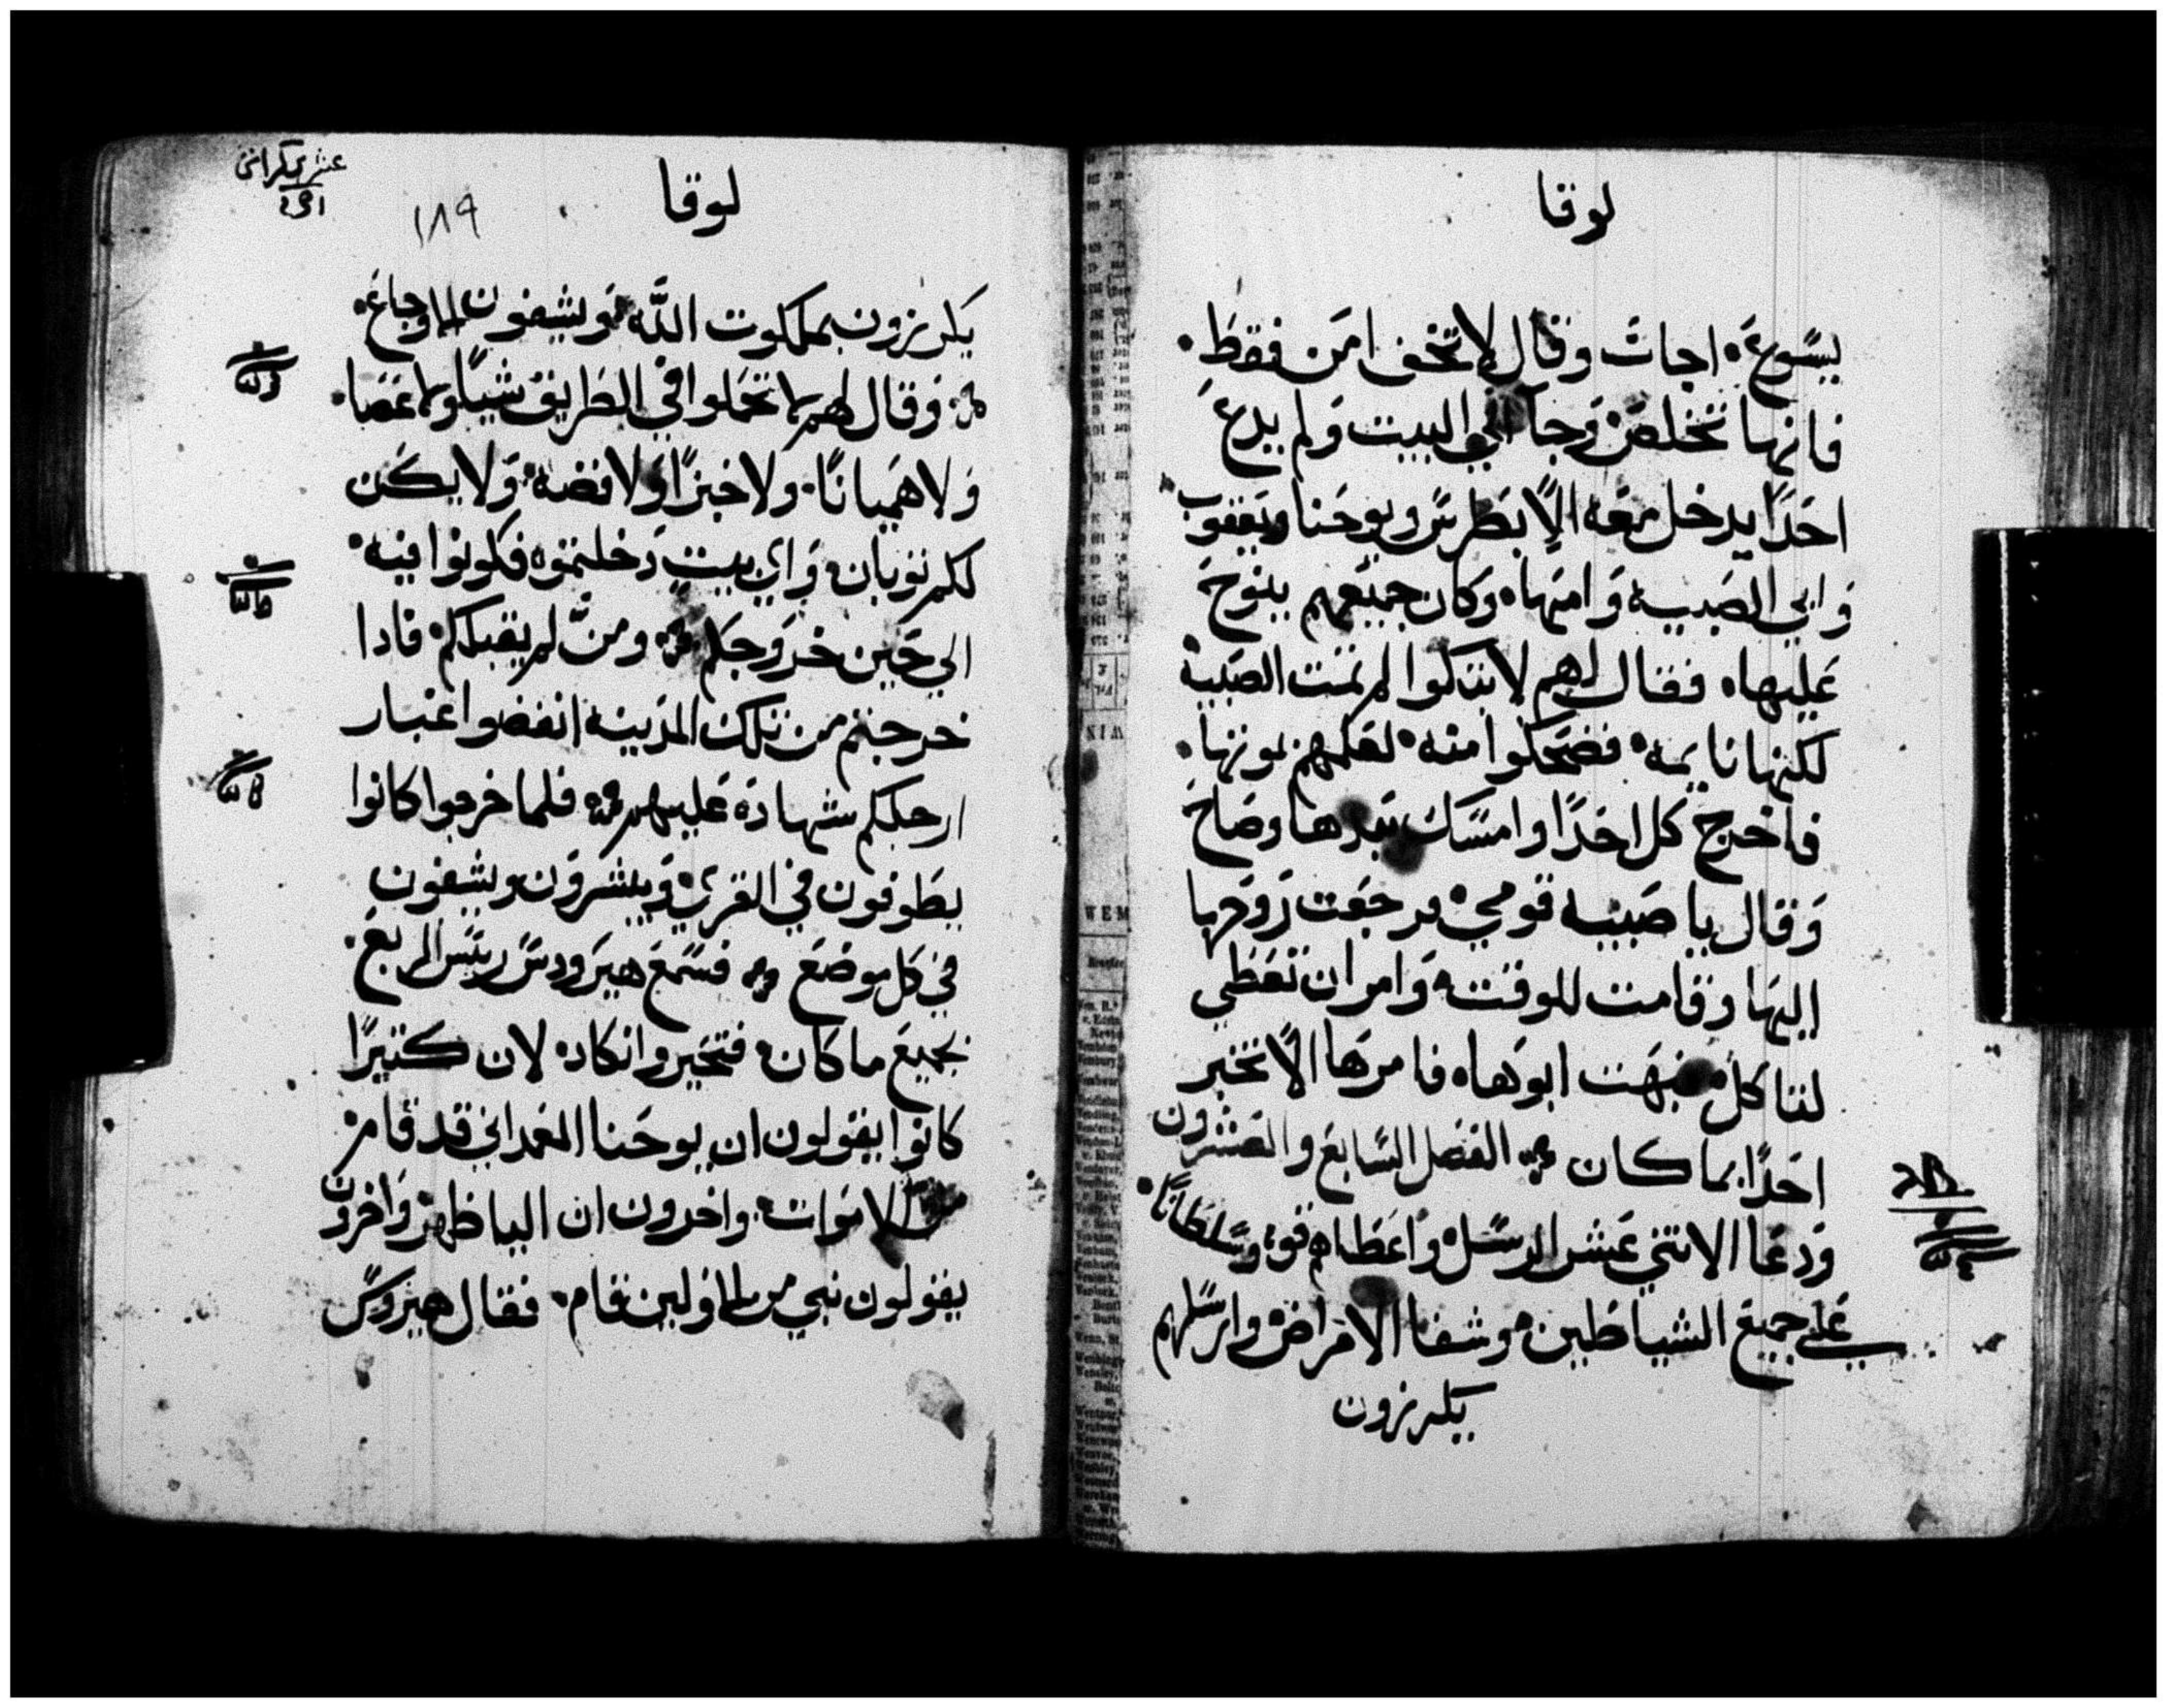 لوقا
يسوع. اجاب وقال لا تخف امن فقط.
فانها تخلص وجا الي البيت ولم يدع
احدًا يدخل معه الا بطرس ويوحنا ويعقوب
وابي الصبيه وامها. وكان جميعهم ينوح
عليها. فقال لهم لا تبكوا لم تمت الصبيه
لكنها نايمه. فضحكوا منه. لعلمهم بموتها.
فاخرج كل احدًا وامسك بيدها وصاح
وقال يا صبيه قومي. فرجعت روحها
اليها وقامت للوقت. وامر ان تعطي
لتاكل. فبهت ابواها. فامرها الا تخبر
احدًا بما كان الفصل السابع والعشرون
ودعا الاتني عشر الرسل. واعطاهم قوة وسلطانًا.
علي جميع الشياطين. وشفا الامراض وارسلهم
يكرزون
لوقا
١٨٩
يكرزون بملكوت الله. ويشفون الاوجاع.
وقال لهم لا تحملوا في الطريق شيًا ولا عصا.
ولا هميانًا. ولا خبزًا ولا فضه. ولا يكن
لكم توبان. واي بيت دخلتموه فكونوا فيه.
الي حين خروجكم ومن لم يقبلكم. فادا
خرجتم من تلك المدينه انفضوا غبار
ارجلكم شهادة عليهم فلما خرجوا كانوا
يطوفون في القري. ويبشرون ويشفون
في كل موضع فسمع هيرودس ريس الربع.
بجميع ما كان. فتحير وانكاد. لان كتيرًا
كانوا يقولون ان يوحنا المعمداني قد قام.
من الاموات. واخرون ان اليا ظهر. واخرون
يقولون نبي من الاولين قام. فقال هيرودس